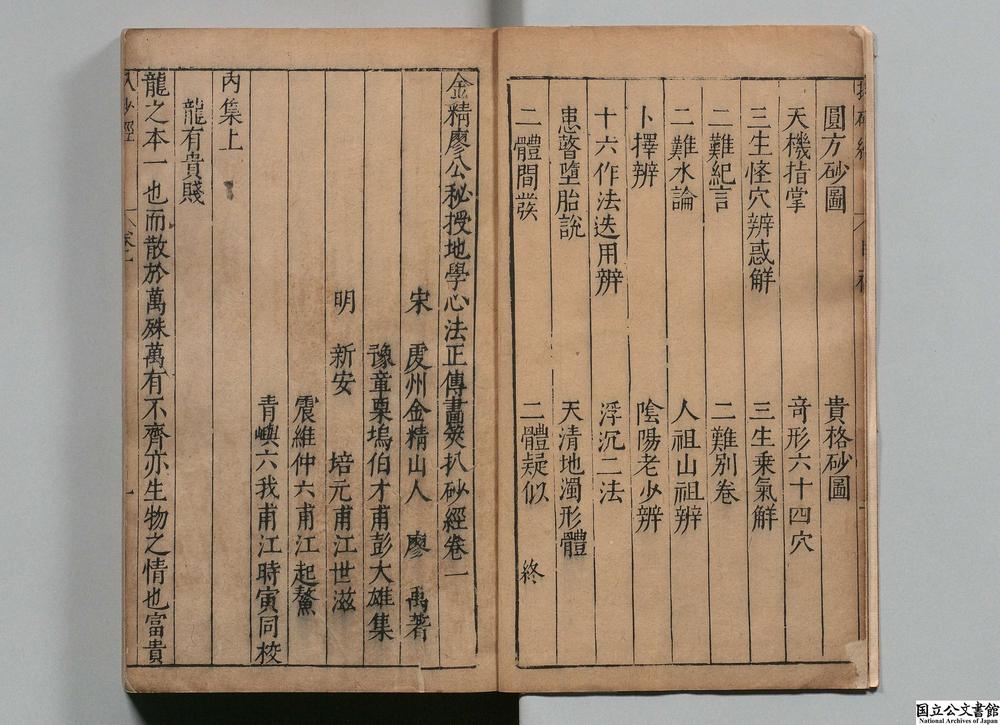 圓方砂圖　貴格砂圖
天機指掌　竒形六十四穴
三生怪穴辨惑解　三生乗氣解
二難紀言　二難別卷
二難水論　人祖山祖辨
卜擇辨　陰陽老少辨
十六作法迭用辨　浮沉二法
患瞽墮胎說　天清地濁形體
二體間發　二體疑似　終
金精廖公秘授地學心法正傳畫筴扒砂經卷一
宋　虔州金精山人　廖　禹著
豫章栗塢伯才甫彭大雄集
明　新安　培元甫江世滋
震維仲六甫江起鰲
青嶼六我甫江時寅同校
內集上
龍有貴賤
龍之本一也而散於萬殊萬有不齊亦生物之情也富貴
国立公文書館
National Archives of Japan